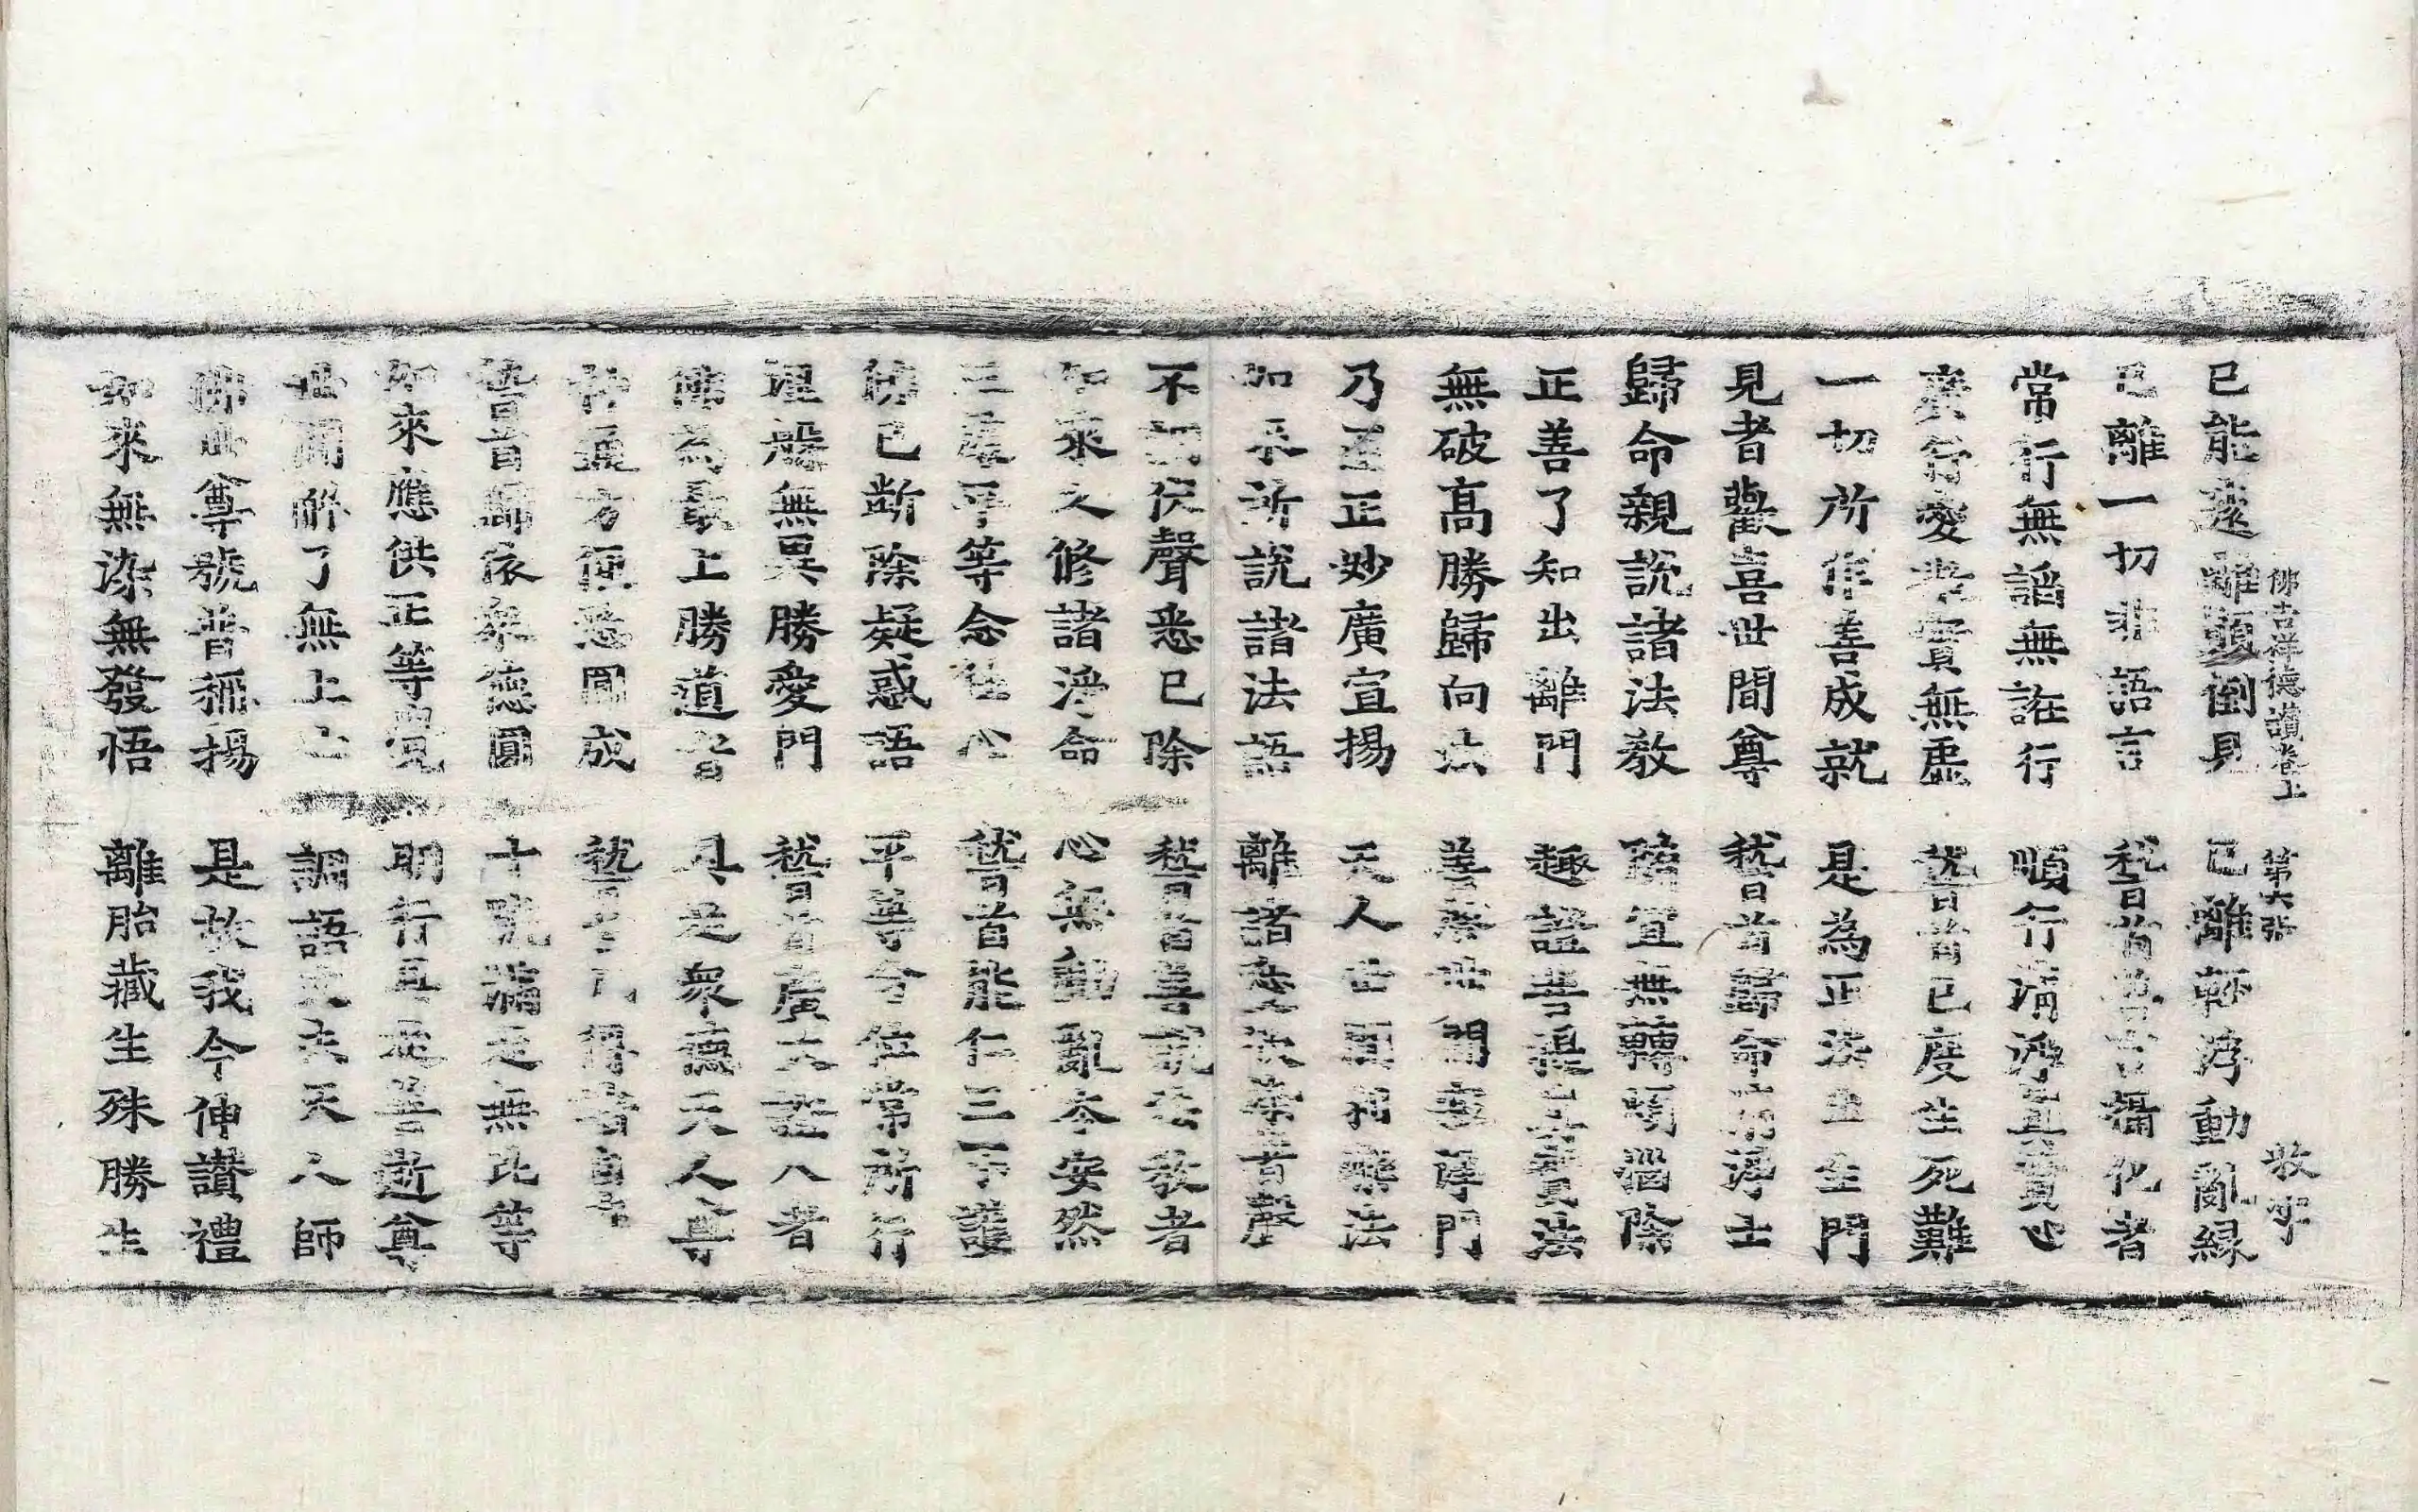 佛吉祥德讃卷上 第六張 敢字
已能遠離顛倒見 已離輕浮動亂縁
已離一切非語言 稽首善言攝化者
常行無謟無誑行 順行清淨真實心
廣行愛業實無虛 稽首已度生死難
一切所作善成就 是為正法出生門
見者歡喜世間尊 稽首歸命清淨士
歸命親說諸法教 隨宜無轉閙惱除
正善了知出離門 趣證菩提真實法
無破高勝歸向法 善發世間安隱門
乃至正妙廣宣揚 天人世間利樂法
如來所說諸法語 離諸惡說
不調伏聲悉已除 稽首善説法教者
如來久修諸淨命 心無動亂今安然
三處平等念住心 稽首能仁三不護
佛已斷除疑惑語 平等今住常所行
理般無異勝愛門 稽首廣大
佛為最上勝道者 具足衆德天人尊
神通方便悉圓成 稽首得
稽首歸依衆德圓 十號滿足無比等
如來應供正等覺 明行具足善逝尊
世間解了無上士 調語丈夫天人師
佛世尊號普稱揚 是故我今伸讃禮
如來無染無發悟 離胎藏生殊勝生